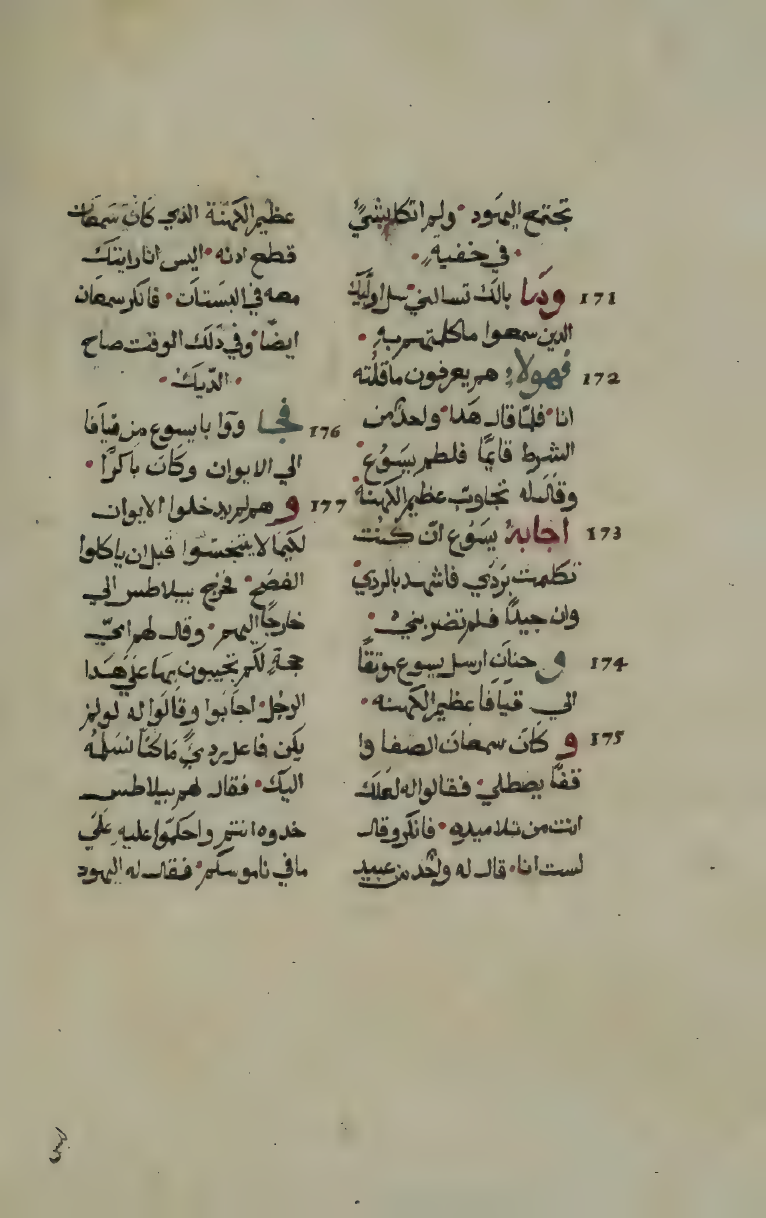 تجتمع اليهود · ولم اتكلم بشيً
· في خفية ·
171 وما بالك تسالني · سل اوليك
الدين سمعوا ما كلمتهم به ·
172 فهولاء هم يعرفون ما قلته
انا · فلما قال هدا · واحدٌ من
الشرط قايمًا فلطم يسوع ·
وقال له تجاوب عظيم الكهنة
173 اجابهُ يسوع ان كنت
تكلمت بردي فاشهد بالردي
وان جيدًا فلم تضربني ·
174 و حنان ارسل يسوع موتقًا
الي قيافا عظيم الكهنه ·
175 و كان سمعان الصفا وا
قفًا يصطلي · فقالوا له لعلك
انت من تلاميده · فانكر وقال
لست انا · قال له واحد من عبيد
عظيم الكهنة الدي كان سمعان
قطع ادنه · اليس انا رايتك
معه في البستان · فانكر سمعان
ايضًا · وفي دلك الوقت صاح
· الديك ·
176 فجا ووا بايسوع من قيافا
الي الايوان وكان باكرًا ·
177 و هم لم يدخلوا الايوان
لكيما لا يتنجسوا قبل ان ياكلوا
الفصح · فخرج بيلاطس الي
خارجًا اليهم · وقال لهم ايّ
حجةٍ لكم تجيبون بها علي هدا
الرجل · اجابوا وقالوا له لو لم
يكن فاعل رديً ما كنا نسلمه
اليك · فقال لهم بيلاطس
خدوه انتم واحكموا عليه علي
ما في ناموسكم · فقال له اليهود
ليس